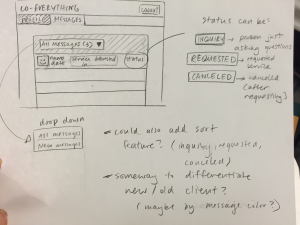 CO-EVERYTHING
PROFILE MESSAGES
All messages (2) ▼
name
date
service interested
in
status
status can be:
INQUIRY → person just
asking questions
REQUESTED → requested
service
CANCELED → canceled
(after
requesting)
drop down
All messages
New messages
- could also add sort
feature? (inquiry, requested,
canceled)
- someway to differentiate
new/old client?
(maybe by message color?)